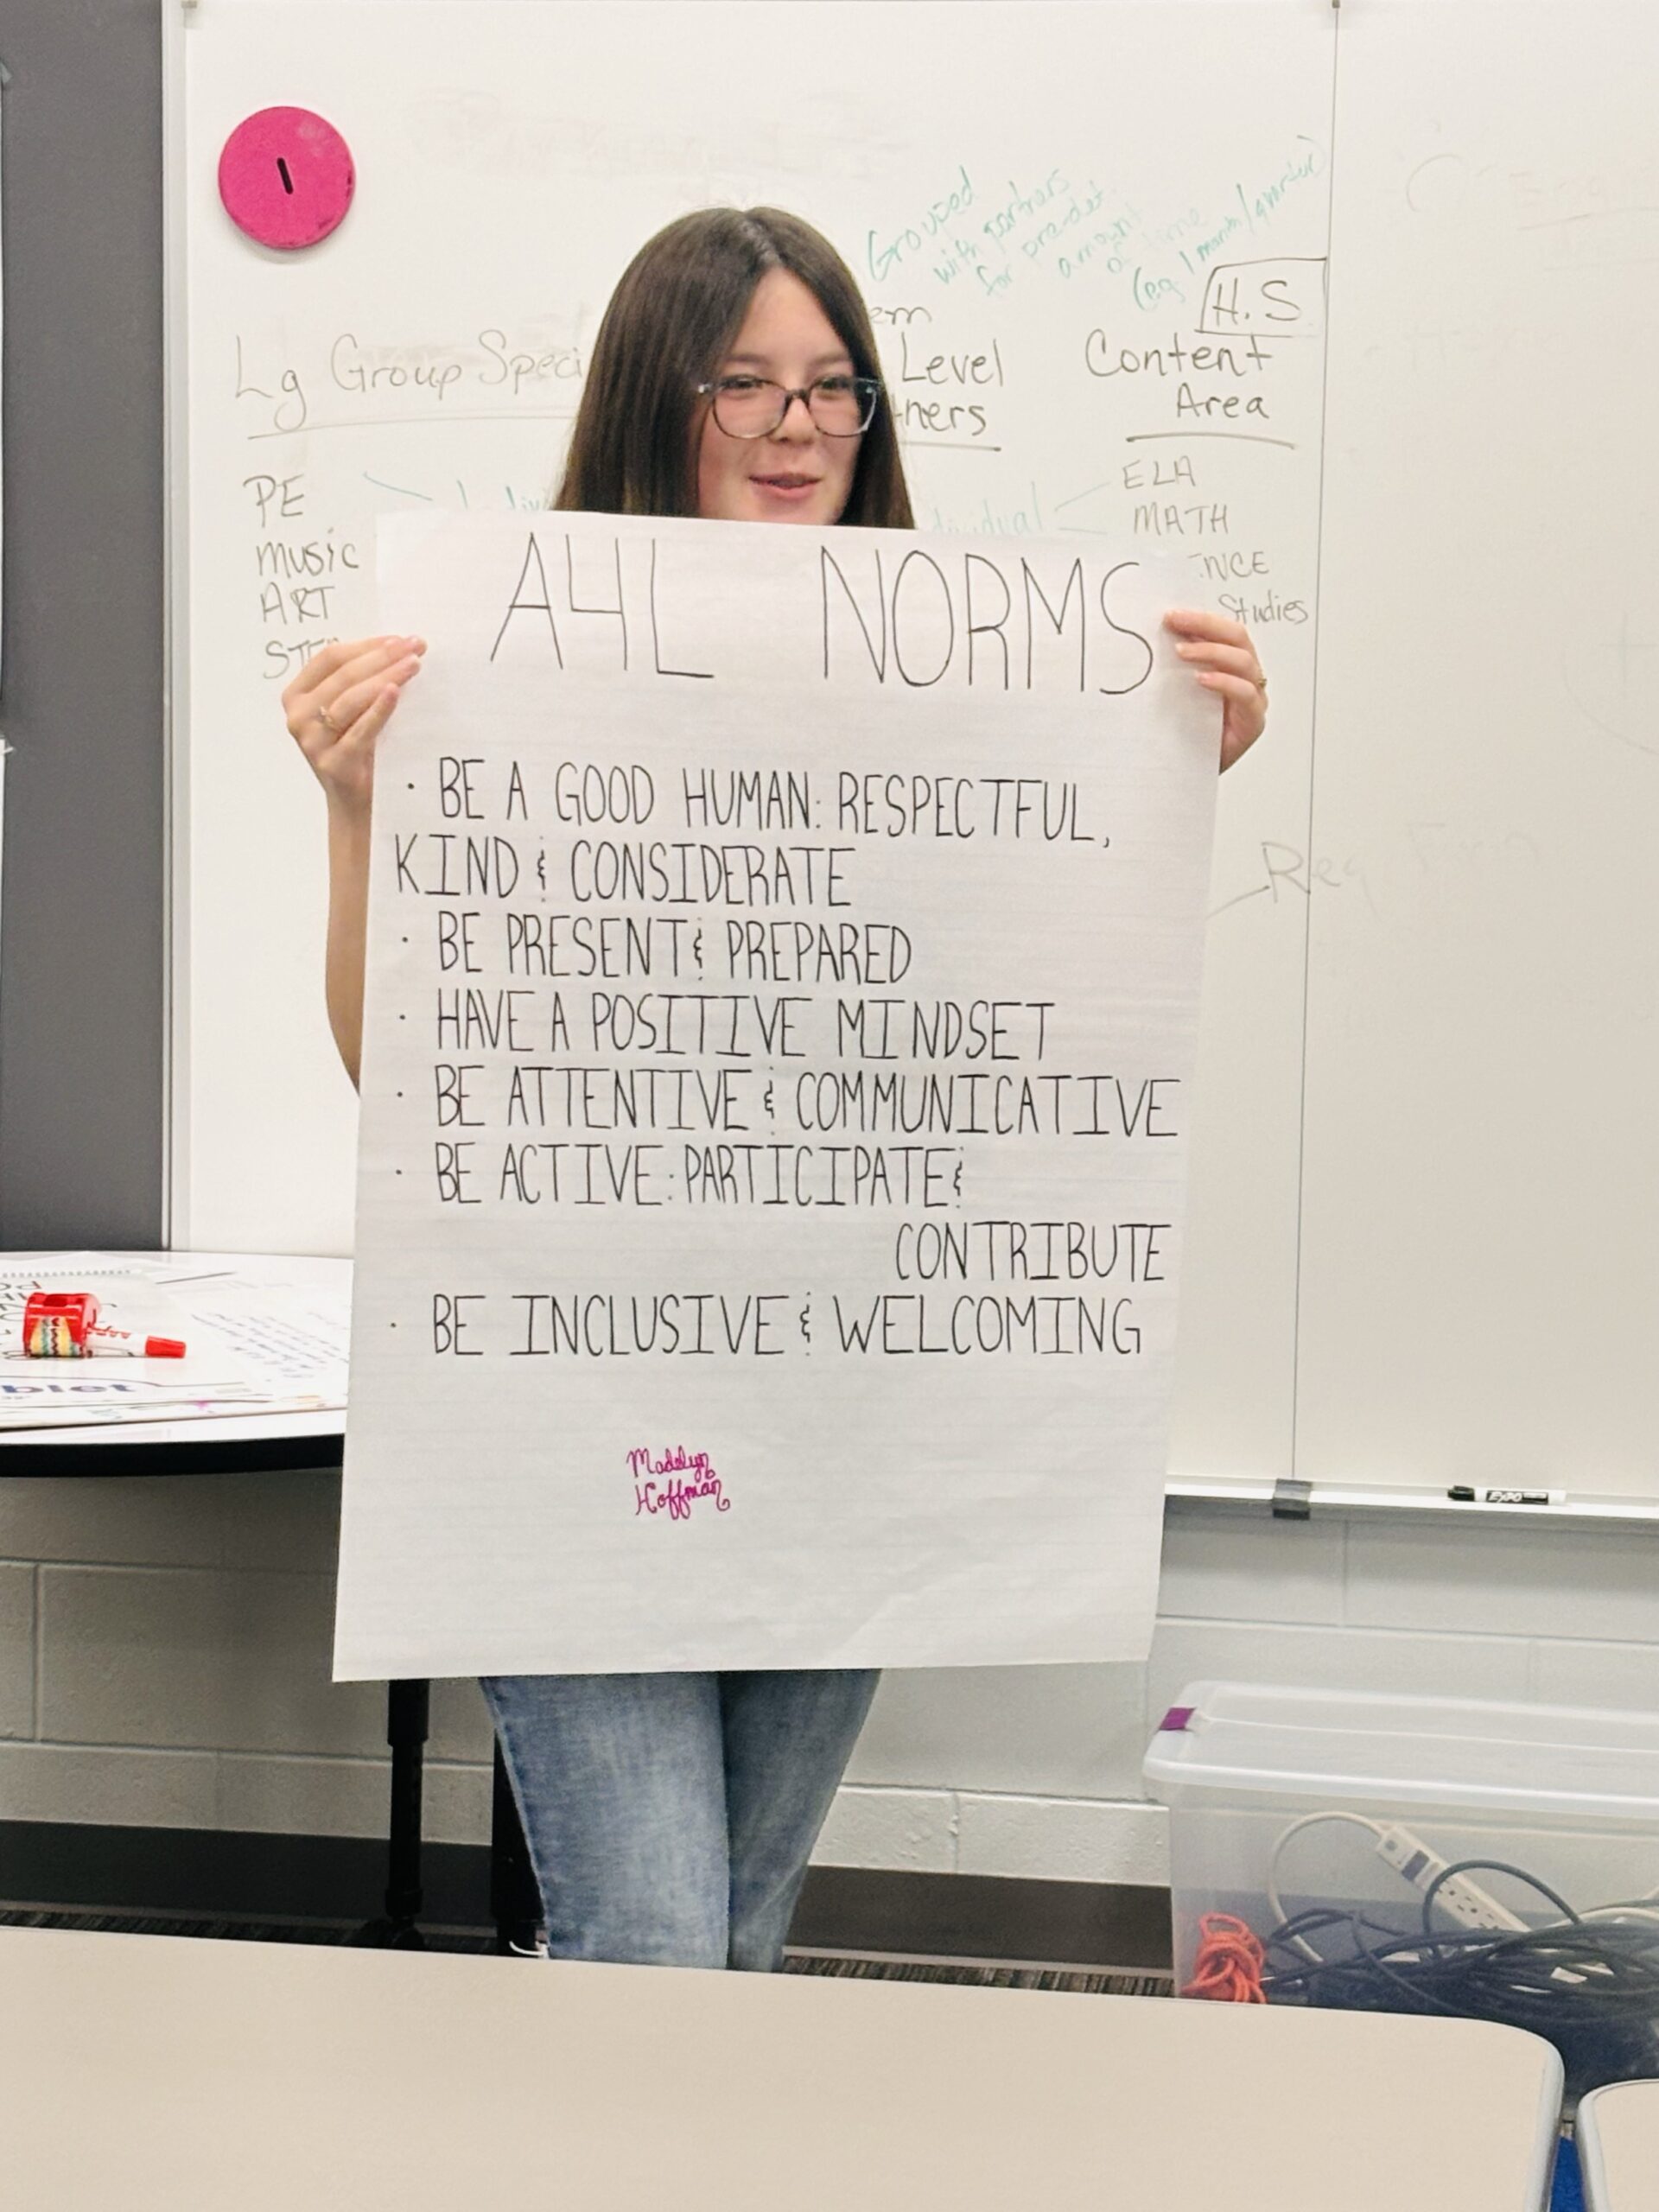 Grouped
with partners
for pre-det.
amount
of time
(eg 1 month/quarter)
H.S
Lg Group Speci
em
Level
tners
Content
Area
PE
music
ART
ELA
MATH
ENCE
Studies
dividual
Req
A4L NORMS
· BE A GOOD HUMAN: RESPECTFUL,
KIND & CONSIDERATE
· BE PRESENT & PREPARED
· HAVE A POSITIVE MINDSET
· BE ATTENTIVE & COMMUNICATIVE
· BE ACTIVE: PARTICIPATE &
CONTRIBUTE
· BE INCLUSIVE & WELCOMING
Madelyn
Hoffman
blet
EXPO